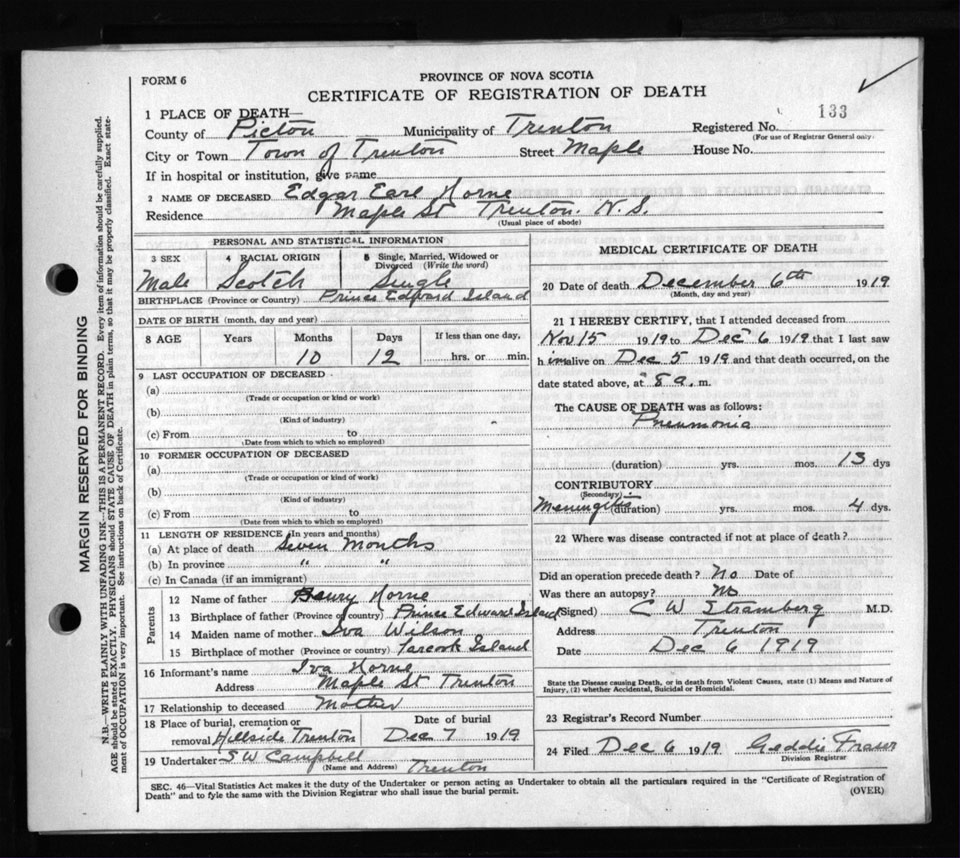 FORM 6
PROVINCE OF NOVA SCOTIA
CERTIFICATE OF REGISTRATION OF DEATH
1 PLACE OF DEATH—
County of Picton Municipality of Trenton Registered No. 133
(For use of Registrar General only.
City or Town Town of Trenton Street Maple House No.
If in hospital or institution, give name
2 NAME OF DECEASED Edgar Earl Horne
Residence Maple St Trenton. N.S.
(Usual place of abode)
PERSONAL AND STATISTICAL INFORMATION
3 SEX 4 RACIAL ORIGIN 5 Single, Married, Widowed or Divorced (Write the word)
Male Scotch Single
BIRTHPLACE (Province or Country) Prince Edward Island
DATE OF BIRTH (month, day and year)
8 AGE Years Months Days If less than one day,
10 12 hrs. or min.
9 LAST OCCUPATION OF DECEASED
(a)
(Trade or occupation or kind or work)
(b)
(Kind of industry)
(c) From to
(Date from which to which so employed)
10 FORMER OCCUPATION OF DECEASED
(a)
(Trade or occupation or kind of work)
(b)
(Kind of industry)
(c) From to
(Date from which to which so employed)
11 LENGTH OF RESIDENCE (In years and months)
(a) At place of death Seven Months
(b) In province " "
(c) In Canada (if an immigrant)
Parents
12 Name of father Henry Horne
13 Birthplace of father (Province or country) Prince Edward Island
14 Maiden name of mother Iva Wilson
15 Birthplace of mother (Province or country) Island
16 Informant's name Iva Horne
Address Maple St Trenton
17 Relationship to deceased Mother
18 Place of burial, cremation or removal Hillside Trenton Date of burial Dec 7 1919
19 Undertaker S W Campbell
(Name and Address) Trenton
MEDICAL CERTIFICATE OF DEATH
20 Date of death December 6th 1919
(Month, day and year)
21 I HEREBY CERTIFY, that I attended deceased from
Nov 15 1919 to Dec 6 1919 that I last saw
h im alive on Dec 5 1919 and that death occurred, on the
date stated above, at 8 a. m.
The CAUSE OF DEATH was as follows:
Pneumonia
(duration) yrs. mos. 13 dys
CONTRIBUTORY
(Secondary)
Meningitis (duration) yrs. mos. 4 dys.
22 Where was disease contracted if not at place of death?
Did an operation precede death? No Date of
Was there an autopsy? No
(Signed) C W Stramberg M.D.
Address Trenton
Date Dec 6 1919
State the Disease causing Death, or in death from Violent Causes, state (1) Means and Nature of
Injury, (2) whether Accidental, Suicidal or Homicidal.
23 Registrar's Record Number
24 Filed Dec 6 1919 Geddie Fraser
Division Registrar
SEC. 46—Vital Statistics Act makes it the duty of the Undertaker or person acting as Undertaker to obtain all the particulars required in the "Certificate of Registration of
Death" and to fyle the same with the Division Registrar who shall issue the burial permit.
(OVER)
MARGIN RESERVED FOR BINDING
N.B.—WRITE PLAINLY WITH UNFADING INK—THIS IS A PERMANENT RECORD. Every item of information should be carefully supplied.
AGE should be stated EXACTLY. PHYSICIANS should STATE CAUSE OF DEATH in plain terms, so that it may be properly classified. Exact state-
ment of OCCUPATION is very important. See instructions on back of Certificate.